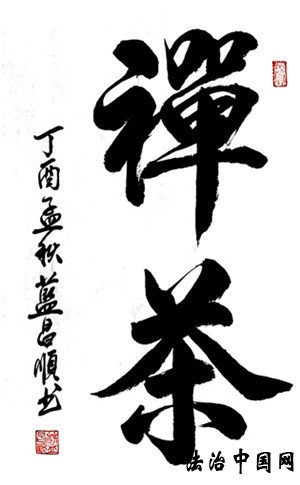 禪茶
丁酉孟秋藍昌順书
法治中国网